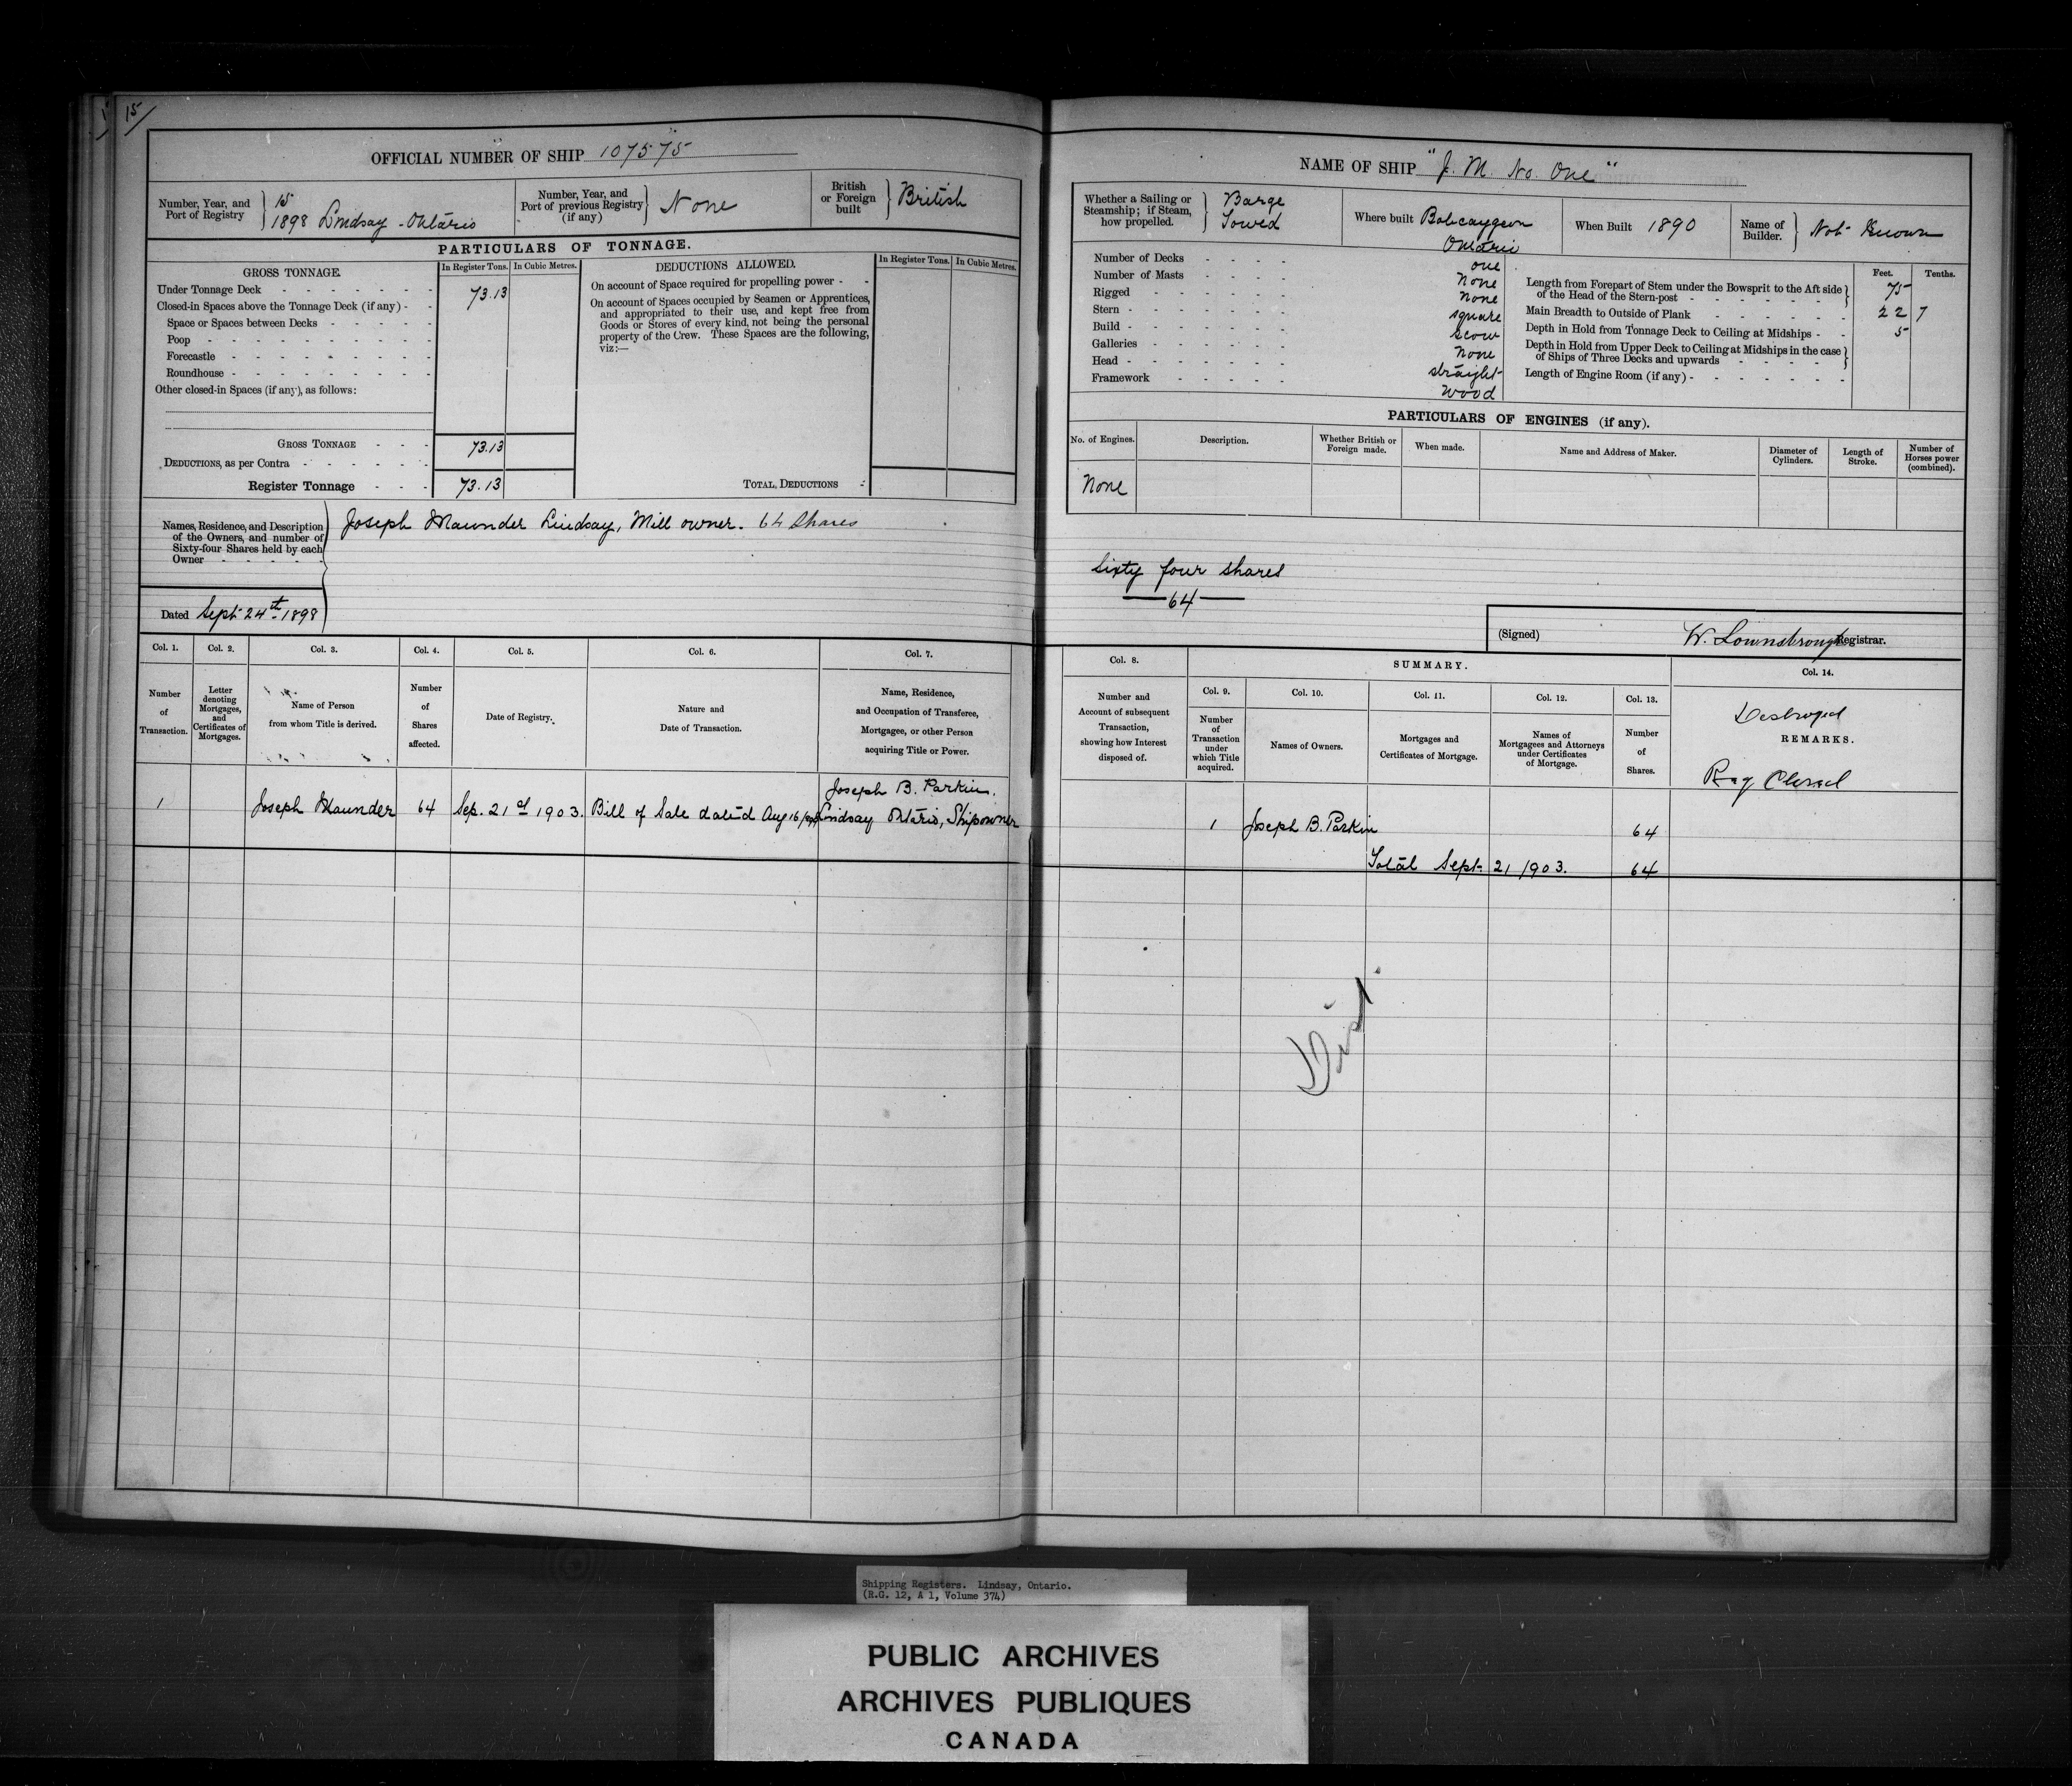 15
OFFICIAL NUMBER OF SHIP 107575
Number, Year, and Port of Registry
15
1898 Lindsay - Ontario
Number, Year, and Port of previous Registry (if any)
None
British or Foreign built
British
PARTICULARS OF TONNAGE.
GROSS TONNAGE.
In Register Tons.
In Cubic Metres.
DEDUCTIONS ALLOWED.
In Register Tons.
In Cubic Metres.
Under Tonnage Deck 73.13
Closed-in Spaces above the Tonnage Deck (if any)
Space or Spaces between Decks
Poop
Forecastle
Roundhouse
Other closed-in Spaces (if any), as follows:
On account of Space required for propelling power
On account of Spaces occupied by Seamen or Apprentices,
and appropriated to their use, and kept free from
Goods or Stores of every kind, not being the personal
property of the Crew. These Spaces are the following,
viz:—
GROSS TONNAGE 73.13
DEDUCTIONS, as per Contra
Register Tonnage 73.13
TOTAL DEDUCTIONS
Names, Residence, and Description
of the Owners, and number of
Sixty-four Shares held by each
Owner
Joseph Maunder Lindsay, Mill owner. 64 Shares
Dated Sept 24th 1898
Col. 1.
Number
of
Transaction.
Col. 2.
Letter
denoting
Mortgages,
and
Certificates of
Mortgages.
Col. 3.
Name of Person
from whom Title is derived.
Col. 4.
Number
of
Shares
affected.
Col. 5.
Date of Registry.
Col. 6.
Nature and
Date of Transaction.
Col. 7.
Name, Residence,
and Occupation of Transferee,
Mortgagee, or other Person
acquiring Title or Power.
1
Joseph Maunder
64
Sep. 21st 1903.
Bill of Sale dated Aug 16
Joseph B. Parkin.
Lindsay Ontario, Shipowner
NAME OF SHIP "J. M. No. One"
Whether a Sailing or
Steamship; if Steam,
how propelled.
Barge
Towed
Where built Bobcaygeon
Ontario
When Built 1890
Name of
Builder.
Not Known
Number of Decks one
Number of Masts None
Rigged None
Stern square
Build scow
Galleries None
Head straight
Framework wood
Feet.
Tenths.
Length from Forepart of Stem under the Bowsprit to the Aft side
of the Head of the Stern-post 75
Main Breadth to Outside of Plank 22 7
Depth in Hold from Tonnage Deck to Ceiling at Midships 5
Depth in Hold from Upper Deck to Ceiling at Midships in the case
of Ships of Three Decks and upwards
Length of Engine Room (if any)
PARTICULARS OF ENGINES (if any).
No. of Engines.
Description.
Whether British or
Foreign made.
When made.
Name and Address of Maker.
Diameter of
Cylinders.
Length of
Stroke.
Number of
Horses power
(combined).
None
Sixty four shares
64
(Signed) W. Lownsbrough Registrar.
Col. 8.
Number and
Account of subsequent
Transaction,
showing how Interest
disposed of.
SUMMARY.
Col. 9.
Number
of
Transaction
under
which Title
acquired.
Col. 10.
Names of Owners.
Col. 11.
Mortgages and
Certificates of Mortgage.
Col. 12.
Names of
Mortgagees and Attorneys
under Certificates
of Mortgage.
Col. 13.
Number
of
Shares.
Col. 14.
Destroyed
REMARKS.
Reg Closed
1
Joseph B. Parkin
64
Total Sept. 21 1903. 64
Shipping Registers. Lindsay, Ontario.
(R.G. 12, A 1, Volume 374)
PUBLIC ARCHIVES
ARCHIVES PUBLIQUES
CANADA